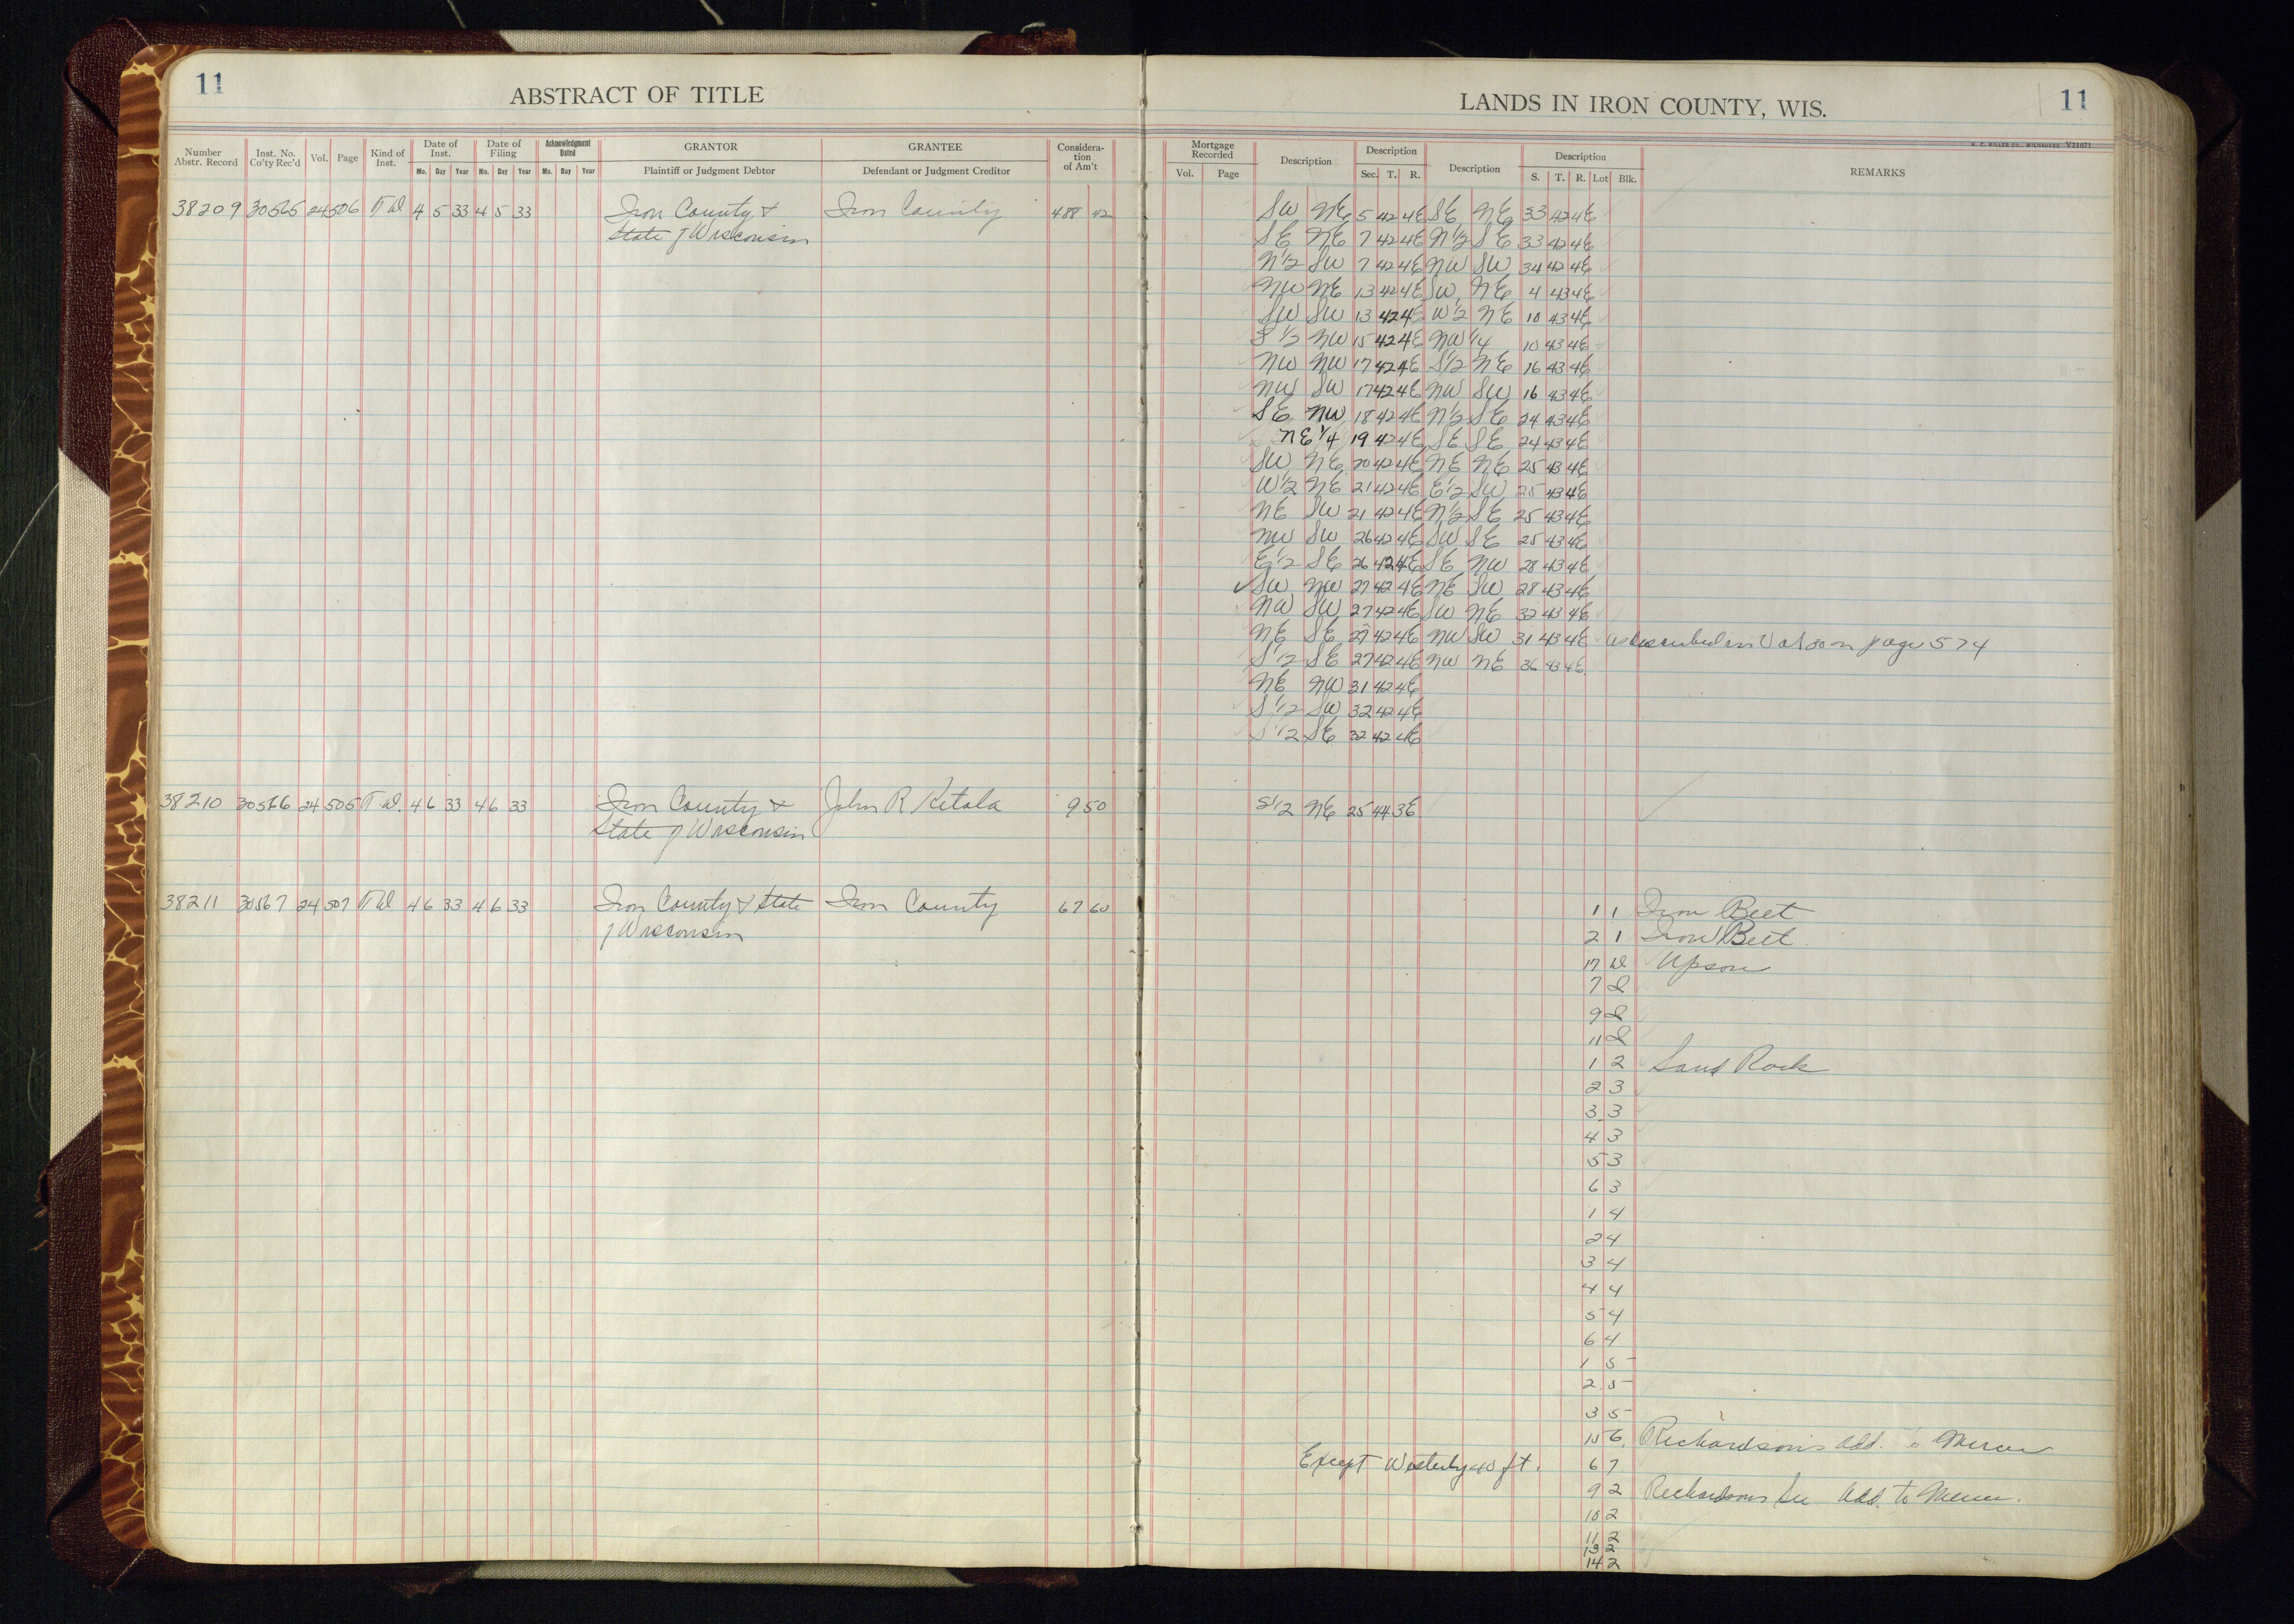 11
ABSTRACT OF TITLE
LANDS IN IRON COUNTY, WIS.
11
H. C. MILLER CO., MILWAUKEE Y21071
Number Abstr. Record
Inst. No. Co'ty Rec'd
Vol.
Page
Kind of Inst.
Date of Inst.
Mo. Day Year
Date of Filing
Mo. Day Year
Acknowledgment Dated
Mo. Day Year
GRANTOR
Plaintiff or Judgment Debtor
GRANTEE
Defendant or Judgment Creditor
Considera-
tion
of Am't
Mortgage Recorded
Vol. Page
Description
Description
Sec. T. R.
Description
Description
S. T. R. Lot Blk.
REMARKS
38209 30565 24 506 T D 4 5 33 4 5 33 Iron County & Iron County 488 42 SW NE 5 42 4E SE NE 33 42 4E
State of Wisconsin SE NE 7 42 4E N1/2 SE 33 42 4E
N1/2 SW 7 42 4E NW SW 34 42 4E
NW NE 13 42 4E SW NE 4 43 4E
SW SW 13 42 4E W1/2 NE 10 43 4E
S 1/2 NW 15 42 4E NW 1/4 10 43 4E
NW NW 17 42 4E S1/2 NE 16 43 4E
NW SW 17 42 4E NW SW 16 43 4E
SE NW 18 42 4E N1/2 SE 24 43 4E
NE 1/4 19 42 4E SE SE 24 43 4E
SW NE 20 42 4E NE NE 25 43 4E
W1/2 NE 21 42 4E E1/2 SW 25 43 4E
NE SW 21 42 4E N1/2 SE 25 43 4E
NW SW 26 42 4E SW SE 25 43 4E
E1/2 SE 26 42 4E SE NW 28 43 4E
✓ SW NW 27 42 4E NE SW 28 43 4E
NW SW 27 42 4E SW NE 32 43 4E
NE SE 27 42 4E NW SW 31 43 4E as described in Vol on page 574
S1/2 SE 27 42 4E NW NE 36 43 4E
NE NW 31 42 4E
S1/2 SW 32 42 4E
S1/2 SE 32 42 4E
38210 30566 24 505 T D. 4 6 33 4 6 33 Iron County & John R Ketola 9 50 S1/2 NE 25 44 3E
State of Wisconsin
38211 30567 24 507 T D 4 6 33 4 6 33 Iron County & State Iron County 67 60 1 1 Iron Belt
of Wisconsin 2 1 Iron Belt
17 Upson
7
9
11
1 2 Sand Rock
2 3
3 3
4 3
5 3
6 3
1 4
2 4
3 4
4 4
5 4
6 4
1 5
2 5
3 5
15 6 Richardson's Add. to Mercer
Except Westerly 40 ft. 6 7
9 2 Richardsons Sec Add. to Mercer.
10 2
11 2
13 2
14 2